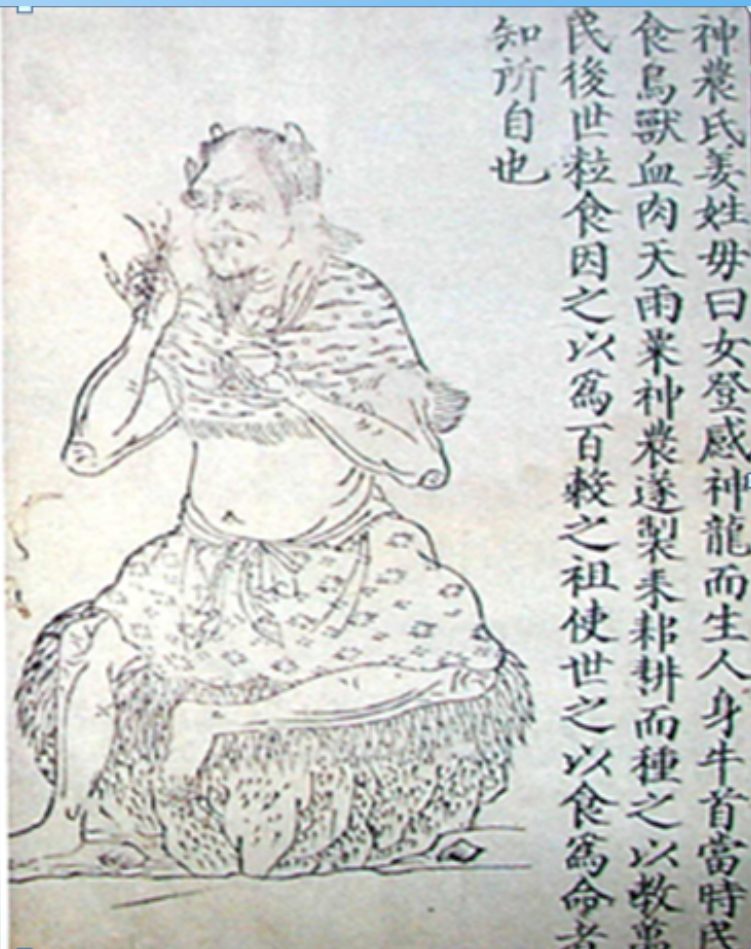 神農氏姜姓毋曰女登感神龍而生人身牛首當時民
食鳥獸血肉天雨粟神農遂製耒耜耕而種之以教萬
民後世粒食因之以爲百穀之祖使世之以食爲命者
知所自也